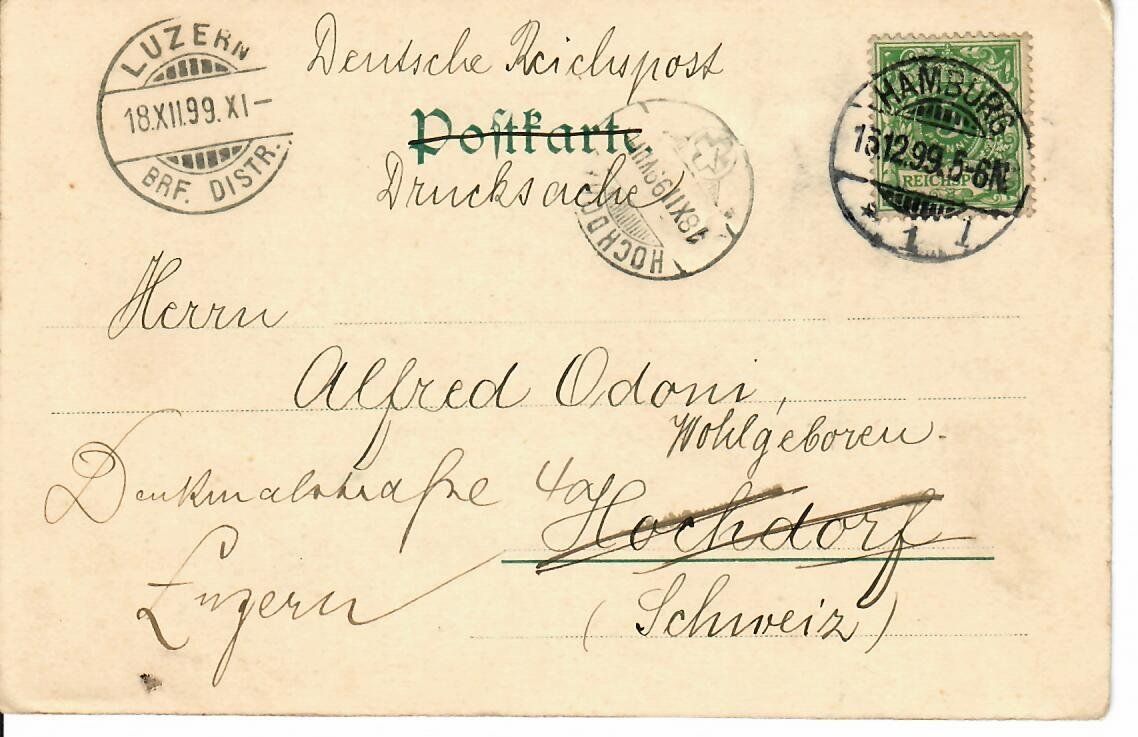 Deutsche Reichspost
Postkarte
Drucksache
LUZERN
18.XII.99.XI-
BRF. DISTR.
HOCHDORF
18.XII.99.VII
HAMBURG
12.99.5-6N.
* 1 1
REICHSPOST
Herrn
Alfred Odoni,
Wohlgeboren.
Denkmalstraße 4a
Hochdorf
Luzern
(Schweiz)